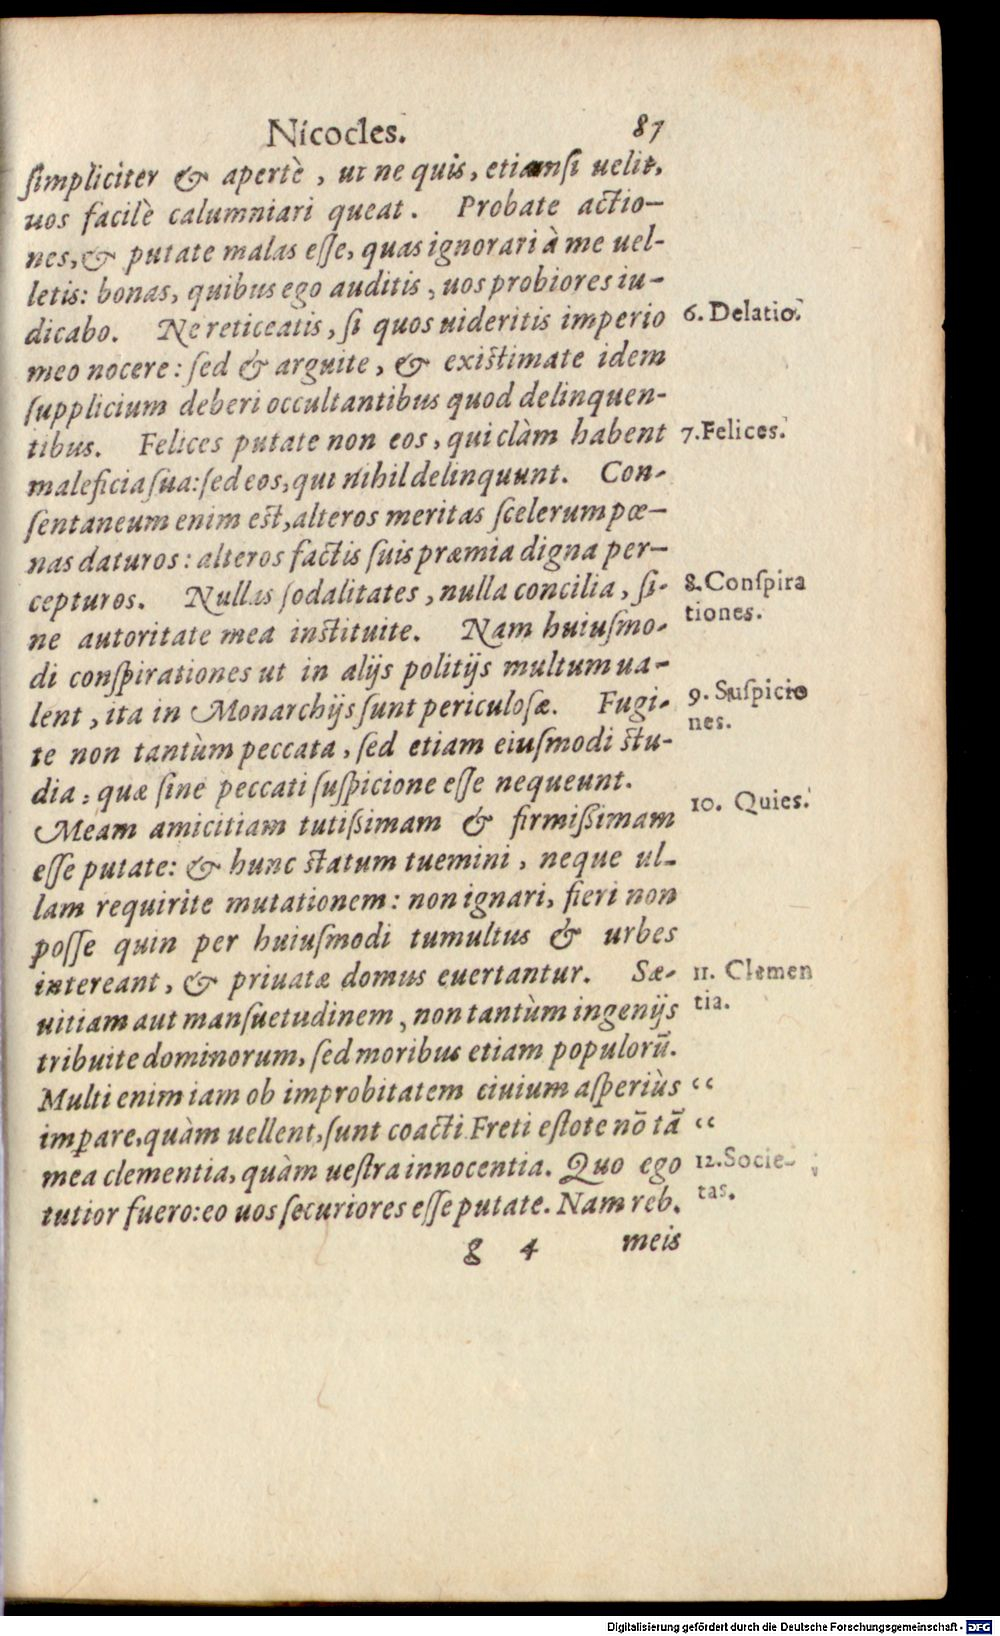 Nicocles. 87
simpliciter & apertè, ut ne quis, etiamsi uelit,
uos facilè calumniari queat. Probate actio-
nes, & putate malas esse, quas ignorari à me uel-
letis: bonas, quibus ego auditis, uos probiores iu-
dicabo. Ne reticeatis, si quos uideritis imperio
6. Delatio.
meo nocere: sed & arguite, & existimate idem
supplicium deberi occultantibus quod delinquen-
tibus. Felices putate non eos, qui clàm habent
7. Felices.
maleficia sua: sed eos, qui nihil delinquunt. Con-
sentaneum enim est, alteros meritas scelerum pœ-
nas daturos: alteros factis suis præmia digna per-
cepturos. Nullas sodalitates, nulla concilia, si-
8. Conspira
tiones.
ne autoritate mea instituite. Nam huiusmo-
di conspirationes ut in alijs politijs multum ua-
lent, ita in Monarchijs sunt periculosæ. Fugi-
9. Suspicio
nes.
te non tantùm peccata, sed etiam eiusmodi stu-
dia: quæ sine peccati suspicione esse nequeunt.
10. Quies.
Meam amicitiam tutissimam & firmissimam
esse putate: & hunc statum tuemini, neque ul-
lam requirite mutationem: non ignari, fieri non
posse quin per huiusmodi tumultus & urbes
intereant, & priuatæ domus euertantur. Sæ-
11. Clemen
tia.
uitiam aut mansuetudinem, non tantùm ingenijs
tribuite dominorum, sed moribus etiam populorū.
Multi enim iam ob improbitatem ciuium asperiùs “
imꝑare, quàm uellent, sunt coacti. Freti estote nō tā “
mea clementia, quàm uestra innocentia. Quo ego
12. Socie-
tas.
tutior fuero: eo uos securiores esse putate. Nam reb.
g 4 meis
Digitalisierung gefördert durch die Deutsche Forschungsgemeinschaft - DFG